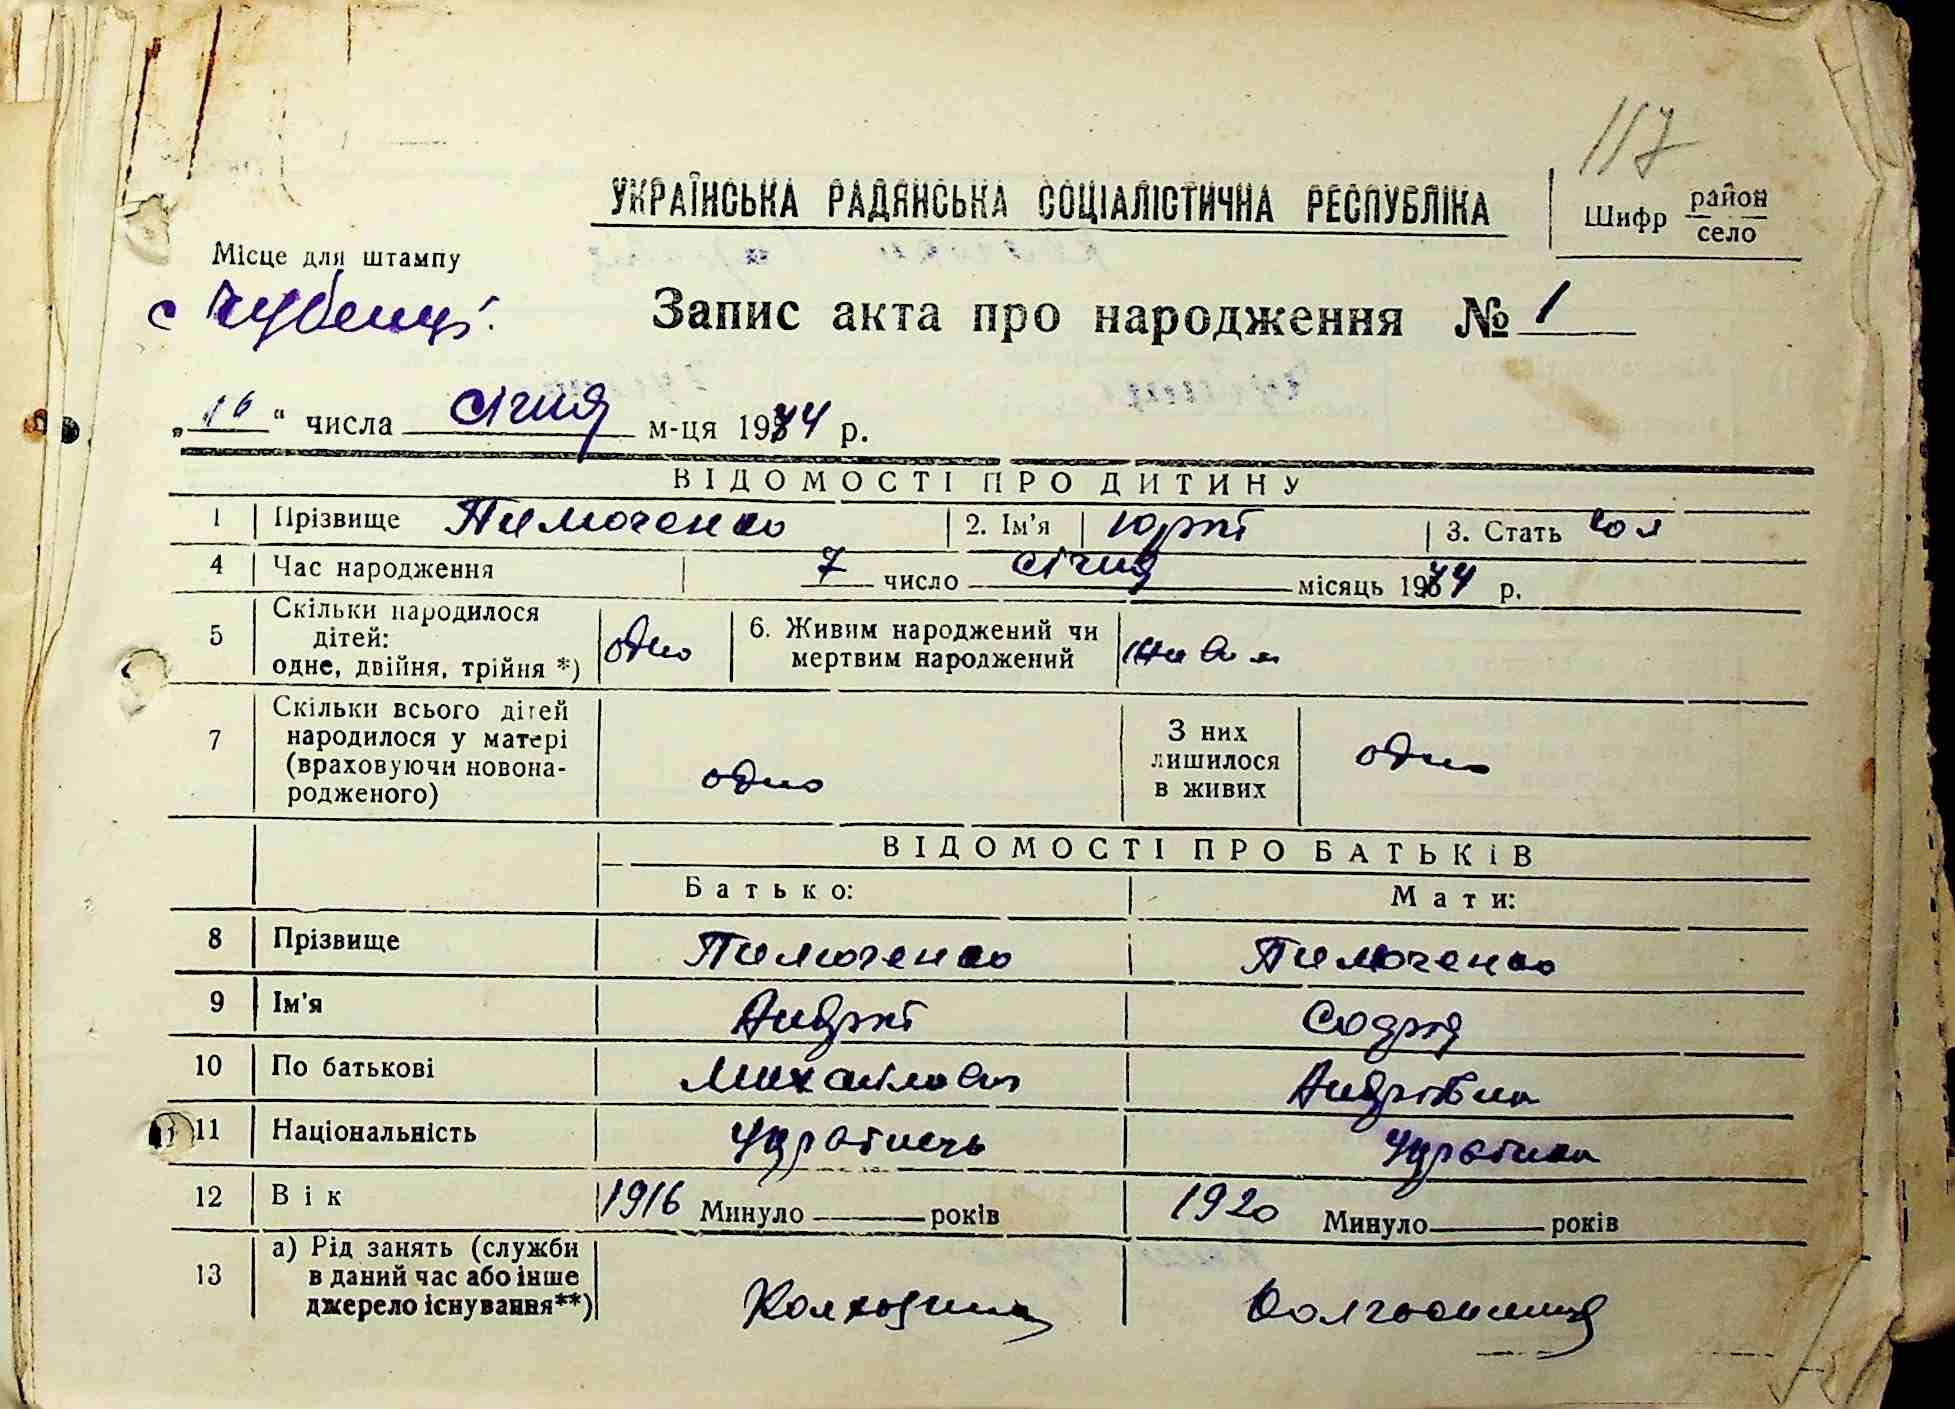 117
УКРАЇНСЬКА РАДЯНСЬКА СОЦІАЛІСТИЧНА РЕСПУБЛІКА
Шифр район село
Місце для штампу
с Чубенці.
Запис акта про народження № 1
„16“ числа січня м-ця 1944 р.
ВІДОМОСТІ ПРО ДИТИНУ
1 Прізвище Тимченко 2. Ім'я Юрій 3. Стать чол
4 Час народження 7 число січня місяць 1944 р.
5 Скільки народилося дітей: одне, двійня, трійня *) одно 6. Живим народжений чи мертвим народжений живим
7 Скільки всього дітей народилося у матері (враховуючи новонародженого) одно З них лишилося в живих одно
ВІДОМОСТІ ПРО БАТЬКІВ
Батько: Мати:
8 Прізвище
9 Ім'я Андрій
10 По батькові Михайлович Андріївна
11 Національність Українець Українка
12 Вік 1916 Минуло років 1920 Минуло років
13 а) Рід занять (служби в даний час або інше джерело існування**)